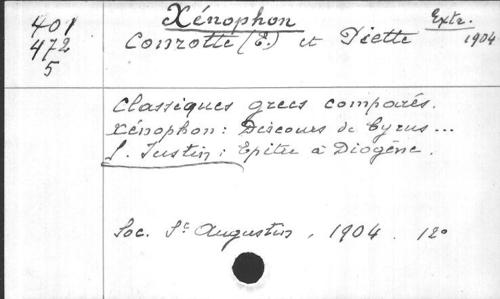 401
472
5
Xénophon
Extr.
Conrotte (E.) et Piette
1904
Classiques grecs comparés.
Xénophon: Discours de Cyrus...
S. Justin: Epitre à Diogène.
Soc. St Augustin, 1904. 12°